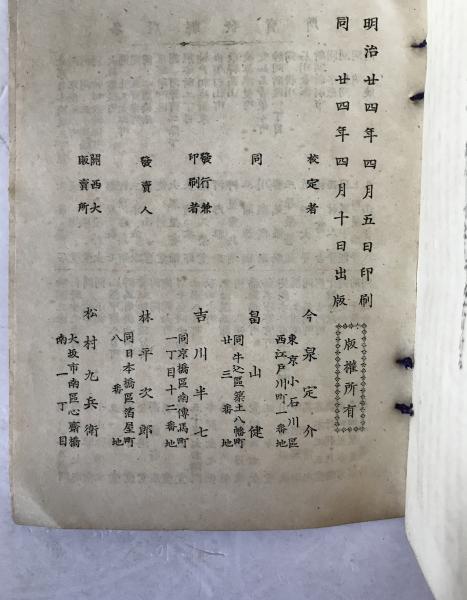 明治廿四年四月五日印刷
同 廿四年四月十日出版
版權所有
校定者
今泉定介
東京小石川區
西江戸川町一番地
同
畠山健
同牛込區築土八幡町
廿三番地
發行兼
印刷者
吉川半七
同京橋區南傳馬町
一丁目十二番地
發賣人
林平次郎
同日本橋區箔屋町
八番地
關西大
販賣所
松村九兵衛
大坂市南區心齋橋
南一丁目